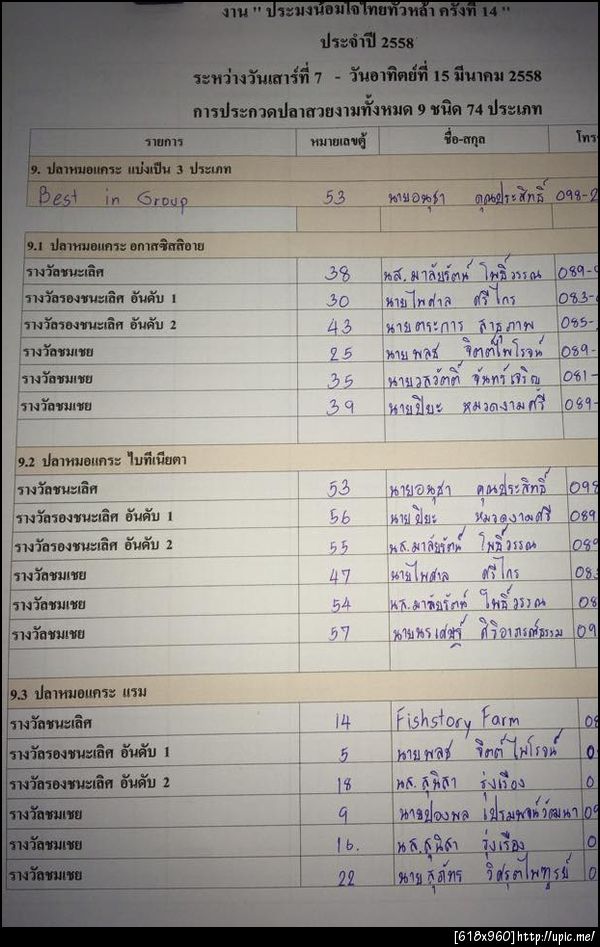 งาน " ประมงน้อมใจไทยทั่วหล้า ครั้งที่ 14 "
ประจำปี 2558
ระหว่างวันเสาร์ที่ 7 - วันอาทิตย์ที่ 15 มีนาคม 2558
การประกวดปลาสวยงามทั้งหมด 9 ชนิด 74 ประเภท
รายการ หมายเลขตู้ ชื่อ-สกุล โทร
9. ปลาหมอแคระ แบ่งเป็น 3 ประเภท
Best in Group 53 นายอนุชา คุณประสิทธิ์ 098-2
9.1 ปลาหมอแคระ อกาสซิสสิอาย
รางวัลชนะเลิศ 38 นส.มาลัยรัตน์ โพธิ์วรรณ 089-
รางวัลรองชนะเลิศ อันดับ 1 30 นายไพศาล ศรีไกร 083-
รางวัลรองชนะเลิศ อันดับ 2 43 นายตระการ สาธุภาพ 085-
รางวัลชมเชย 25 นายพลช จิตต์ไพโรจน์ 089-
รางวัลชมเชย 35 นายวสวัตติ์ จันทร์เจริญ 081-
รางวัลชมเชย 39 นายปิยะ หมวดงามศรี 089-
9.2 ปลาหมอแคระ ไบทีเนียตา
รางวัลชนะเลิศ 53 นายอนุชา คุณประสิทธิ์ 098
รางวัลรองชนะเลิศ อันดับ 1 56 นายปิยะ หมวดงามศรี 089
รางวัลรองชนะเลิศ อันดับ 2 55 นส.มาลัยรัตน์ โพธิ์วรรณ 089
รางวัลชมเชย 47 นายไพศาล ศรีไกร 083
รางวัลชมเชย 54 นส.มาลัยรัตน์ โพธิ์วรรณ 08
รางวัลชมเชย 57 นายนรเศษฐ์ ศิริอาภรณ์ธรรม 09
9.3 ปลาหมอแคระ แรม
รางวัลชนะเลิศ 14 Fishstory Farm 08
รางวัลรองชนะเลิศ อันดับ 1 5 นายพลช จิตต์ไพโรจน์ 0
รางวัลรองชนะเลิศ อันดับ 2 18 นส.สุนิสา รุ่งเรือง 0
รางวัลชมเชย 9 นายปองพล เปรมพจน์วัฒนา 09
รางวัลชมเชย 16. นส.สุนิสา รุ่งเรือง 0
รางวัลชมเชย 22 นายสุภัทร วิศรุตไพฑูรย์ 0
[618x960]http://upic.me/